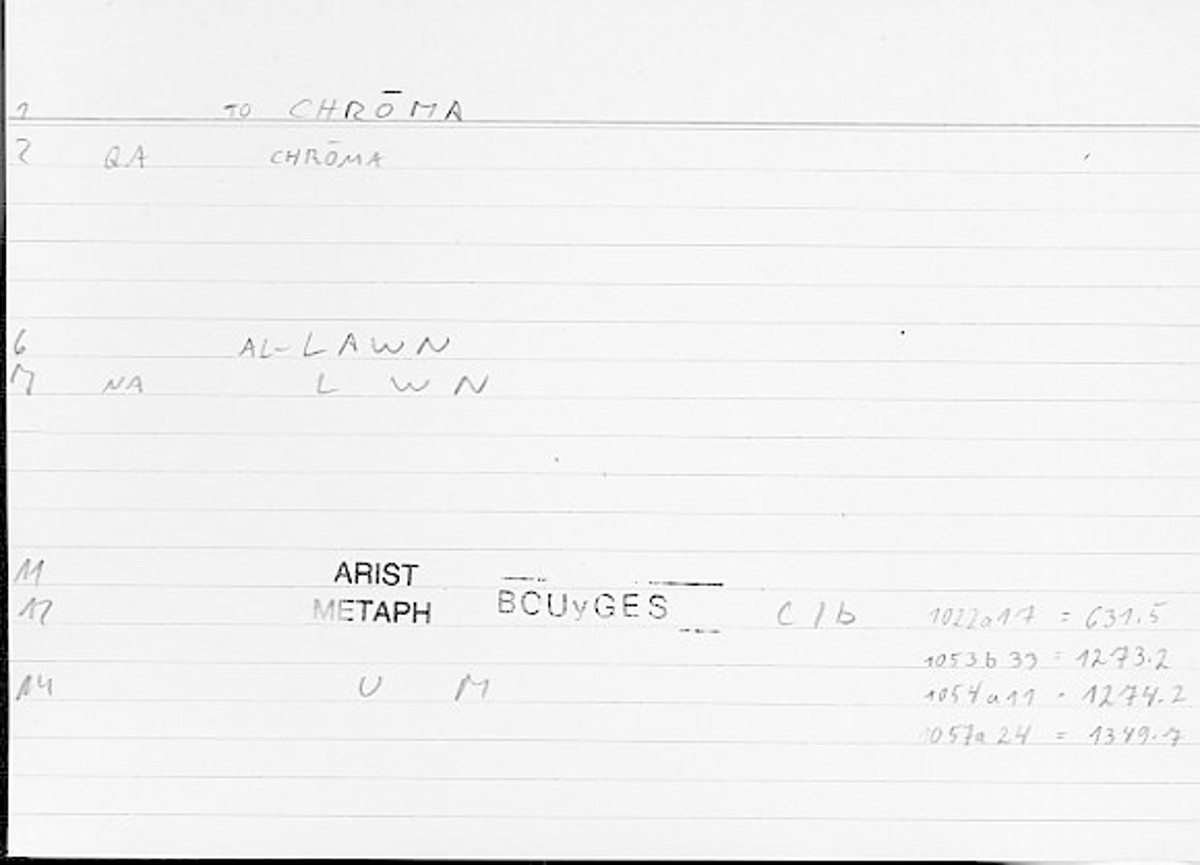 1 TO CHRŌMA
2 QA CHRŌMA
6 AL-LAWN
7 NA L W N
11 ARIST
12 METAPH BOUyGES C/b 1022a17 = 631.5
1053b33 = 1273.2
14 U M 1054a11 = 1274.2
1057a24 = 1349.7